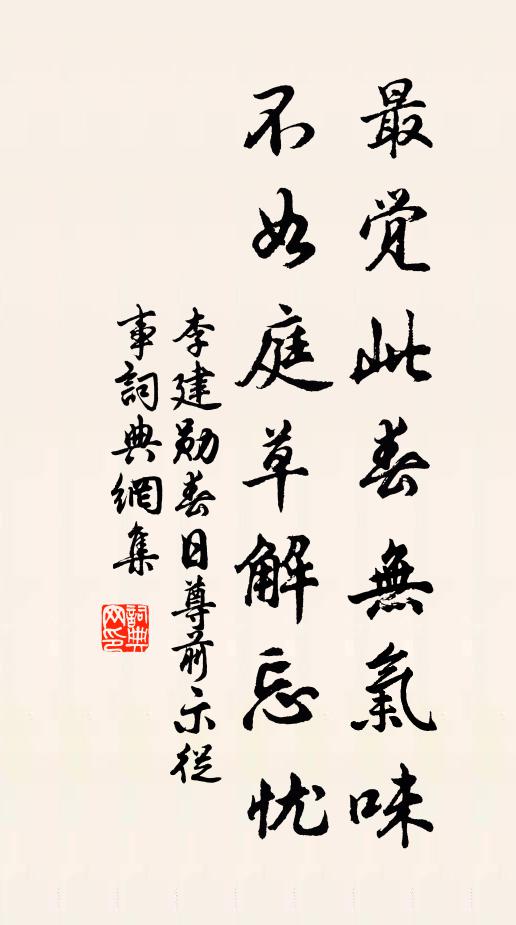 最觉此春無氣味
不如庭草解忘忧
李建勋春日尊前示從
事詞典網集
詞典
网印